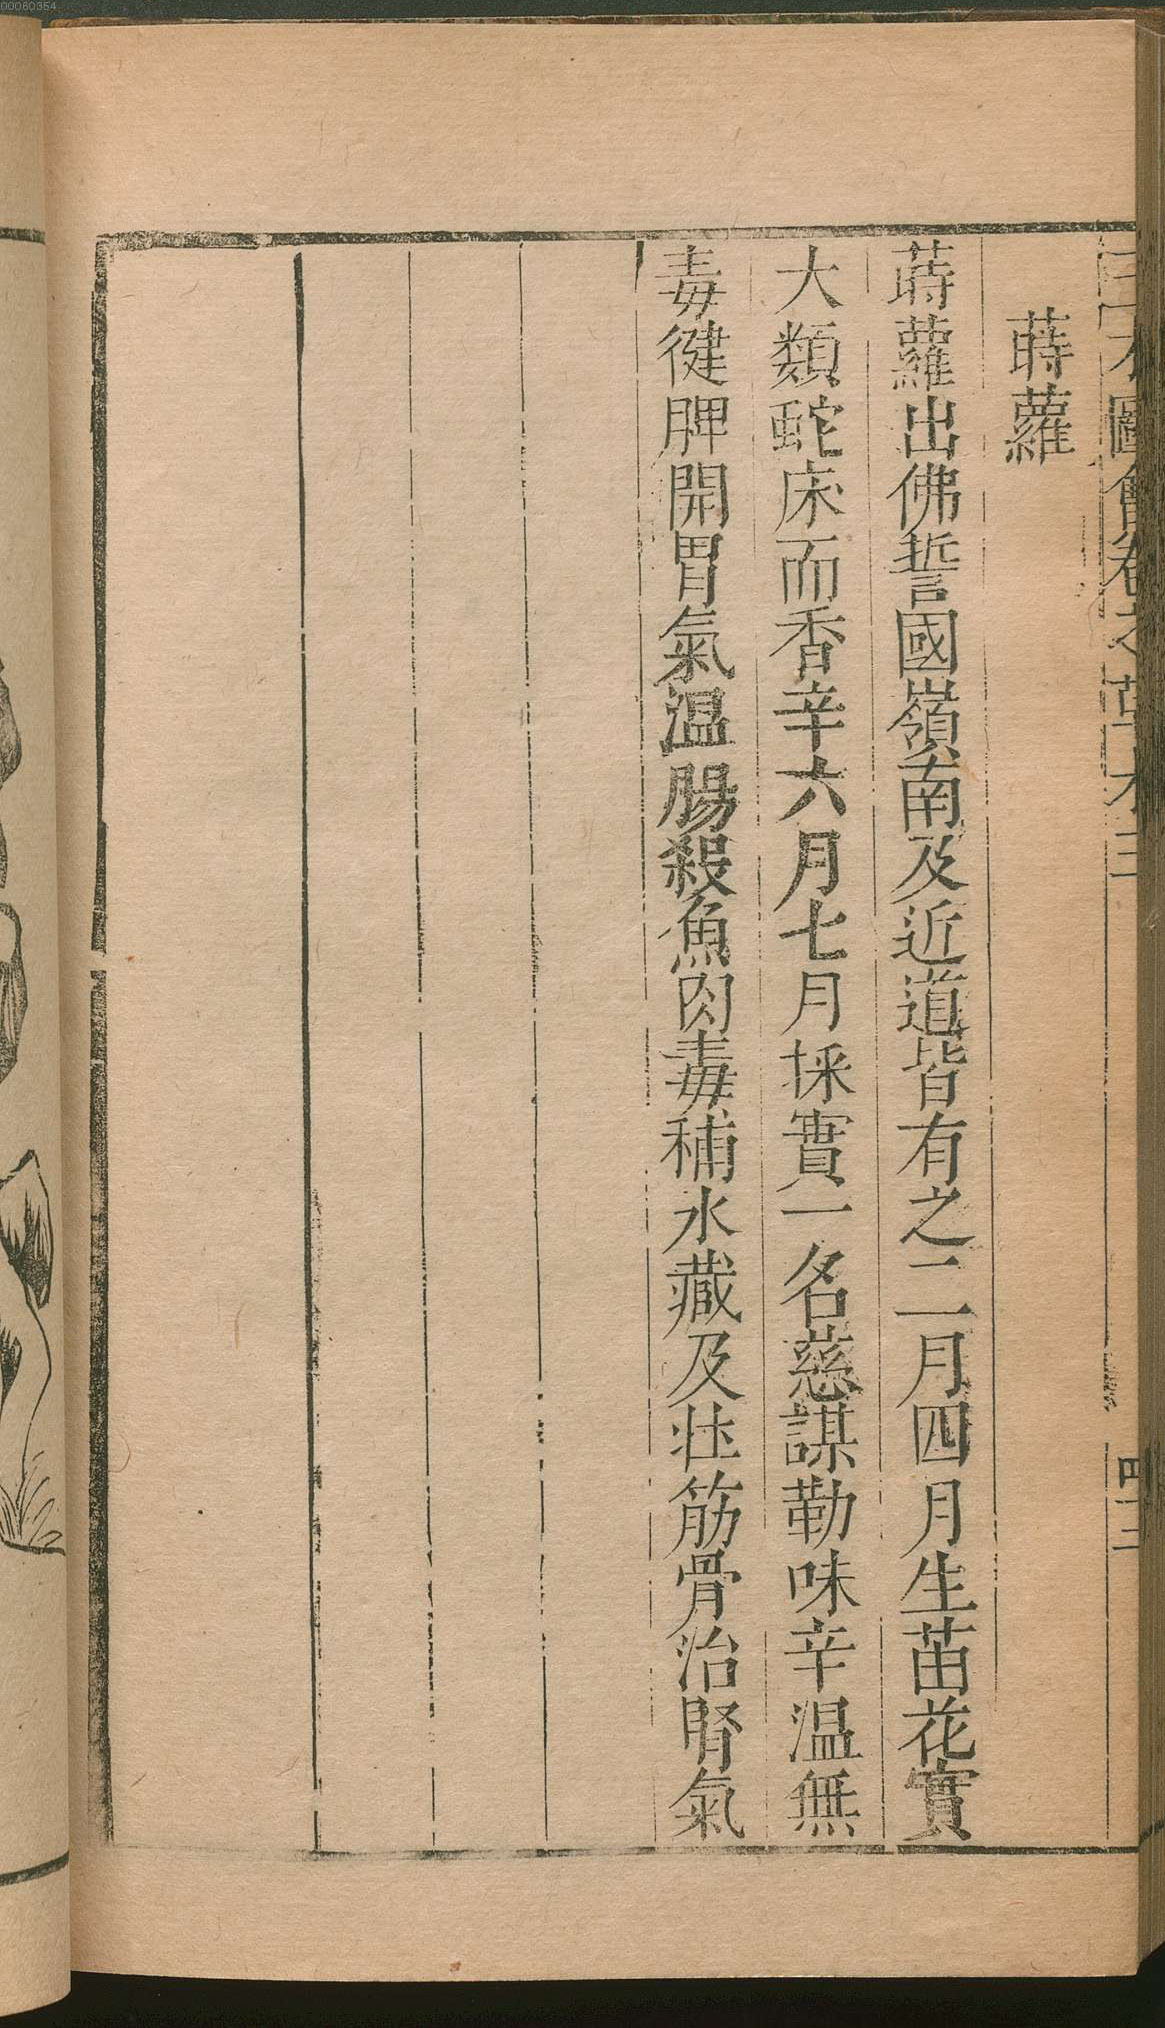 00060354
蒔蘿
蒔蘿出佛誓國嶺南及近道皆有之二月四月生苗花實
大類蛇床而香辛六月七月採實一名慈謀勒味辛温無
毒徤脾開胃氣温腸殺魚肉毒補水藏及壯筋骨治腎氣